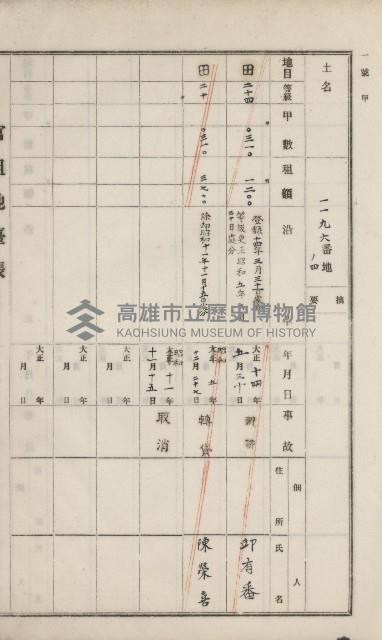 一號甲
土名
一一九六番地ノ四
摘要
地目
等級
甲數
租額
沿
年月日
事故
個人
住所
氏名
田
二十四
〇三一〇
一二〇〇
登錄
大正十四年
五月三十日
邱有番
田
二十
〇三一〇
三七〇〇
除却昭和十一年十一月十五日處分
等級更正昭和五年
昭和
五年
十二月二十七日
轉貸
陳榮喜
昭和
十一年
十一月十五日
取消
大正 年
月 日
大正 年
月 日
大正 年
月 日
官租地臺帳
高雄市立歷史博物館
KAOHSIUNG MUSEUM OF HISTORY